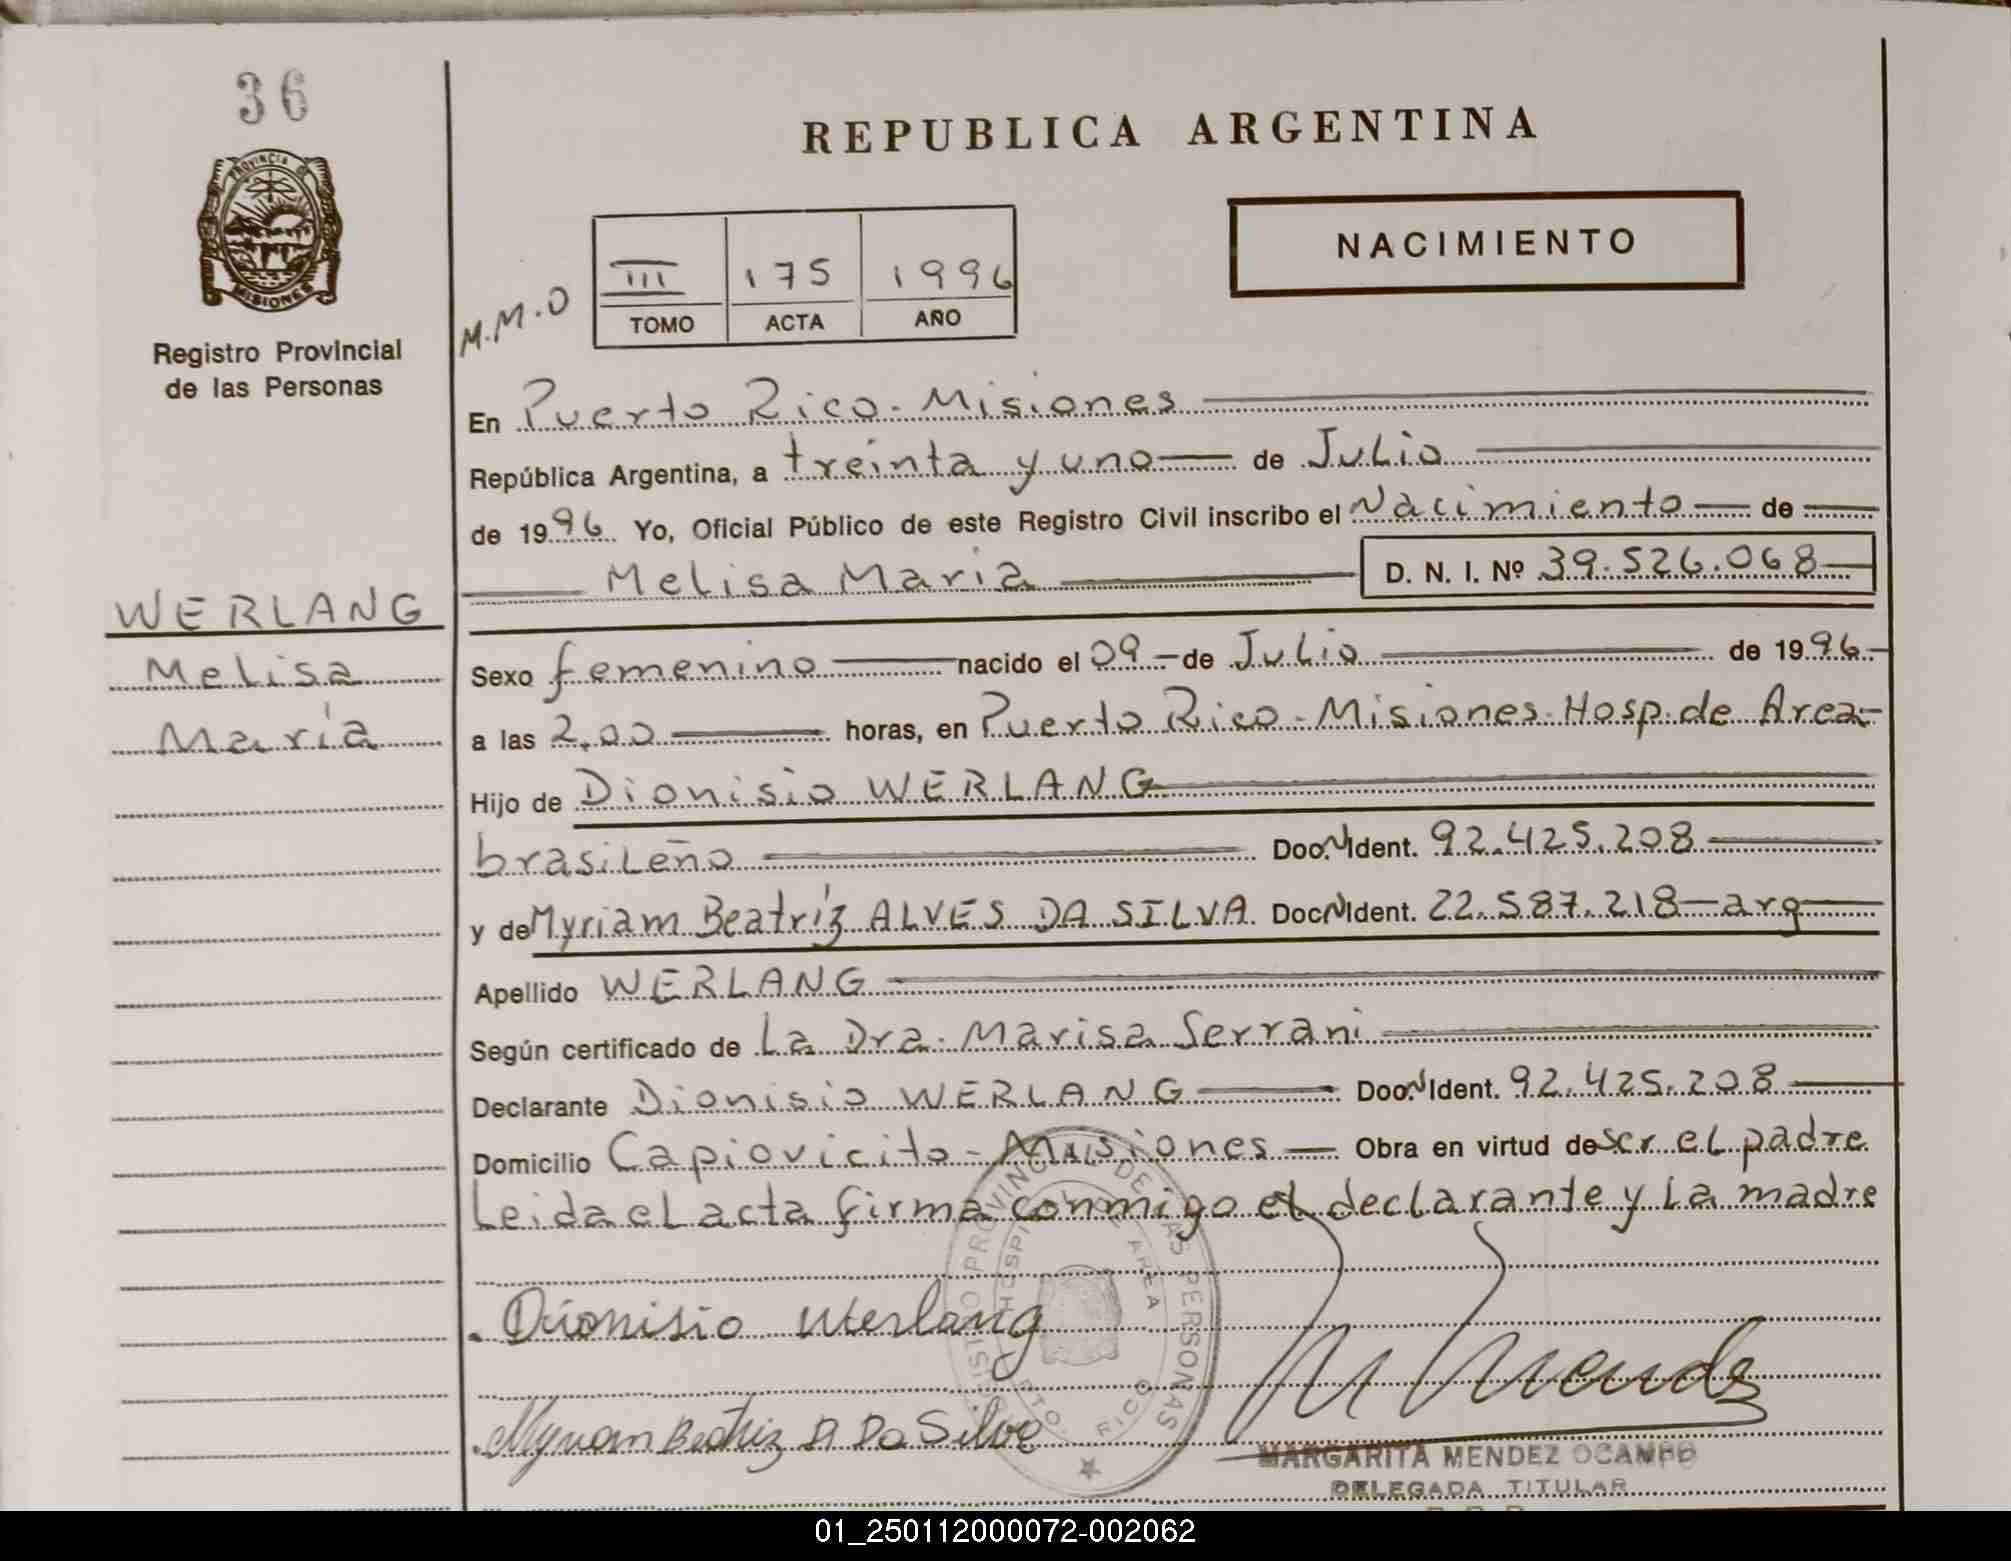 36
REPUBLICA ARGENTINA
PROVINCIA DE
MISIONES
Registro Provincial
de las Personas
M.M.O
III 175 1996
TOMO ACTA AÑO
NACIMIENTO
En Puerto Rico - Misiones
República Argentina, a treinta y uno de Julio
de 1996 Yo, Oficial Público de este Registro Civil inscribo el Nacimiento de
Melisa María D. N. I. Nº 39.526.068
WERLANG
Melisa
María
Sexo femenino nacido el 09 de Julio de 1996
a las 2,00 horas, en Puerto Rico - Misiones - Hosp. de Area
Hijo de Dionisio WERLANG
brasileño Doc. N Ident. 92.425.208
y de Myriam Beatríz ALVES DA SILVA Doc. N Ident. 22.587.218 - arg
Apellido WERLANG
Según certificado de La Dra. Marisa Serrani
Declarante Dionisio WERLANG Doc. N Ident. 92.425.208
Domicilio Capiovicito - Misiones Obra en virtud de ser el padre
Leida el acta firma conmigo el declarante y La madre
Dionisio Werlang
Myriam Beatriz A Da Silva
M Mendez
REGISTRO PROVINCIAL DE LAS PERSONAS
HOSPITAL DE AREA
PTO. RICO
MARGARITA MENDEZ OCAMPO
DELEGADA TITULAR
01_250112000072-002062